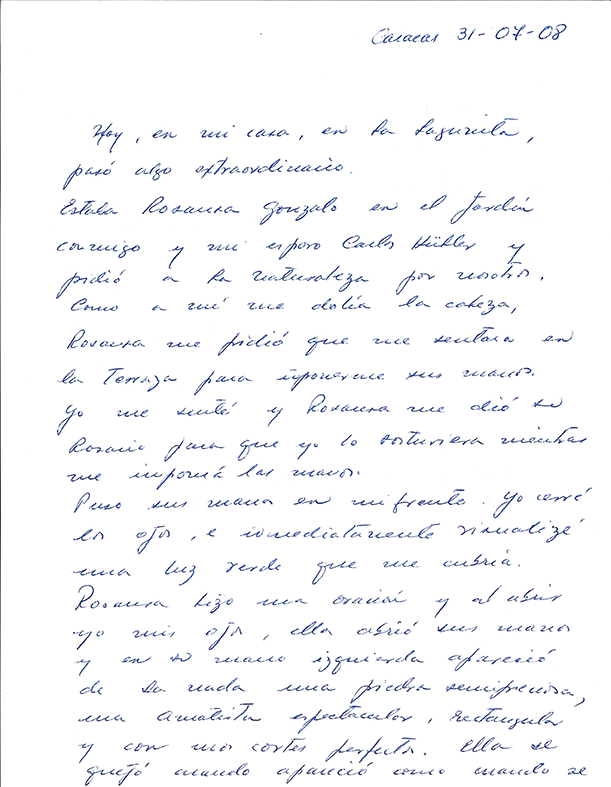 Caracas 31-07-08
Hoy, en mi casa, en La Lagunita,
pasó algo extraordinario.
Estaba Rosaura Gonzalo en el Jardín
conmigo y mi esposo Carlos y
pidió a la naturaleza por nosotros.
Como a mí me dolía la cabeza,
Rosaura me pidió que me sentara en
la Terraza para imponerme sus manos.
Yo me senté y Rosaura me dió su
Rosario para que yo lo sostuviera mientras
me imponía las manos.
Puso sus manos en mi frente. Yo cerré
los ojos, e inmediatamente visualizé
una luz verde que me cubría.
Rosaura hizo una oración y al abrir
yo mis ojos, ella abrió sus manos
y en su mano izquierda apareció
de la nada una piedra semipreciosa,
una Amatista espectacular, rectangular
y con unos cortes perfectos. Ella se
quejó cuando apareció como cuando se